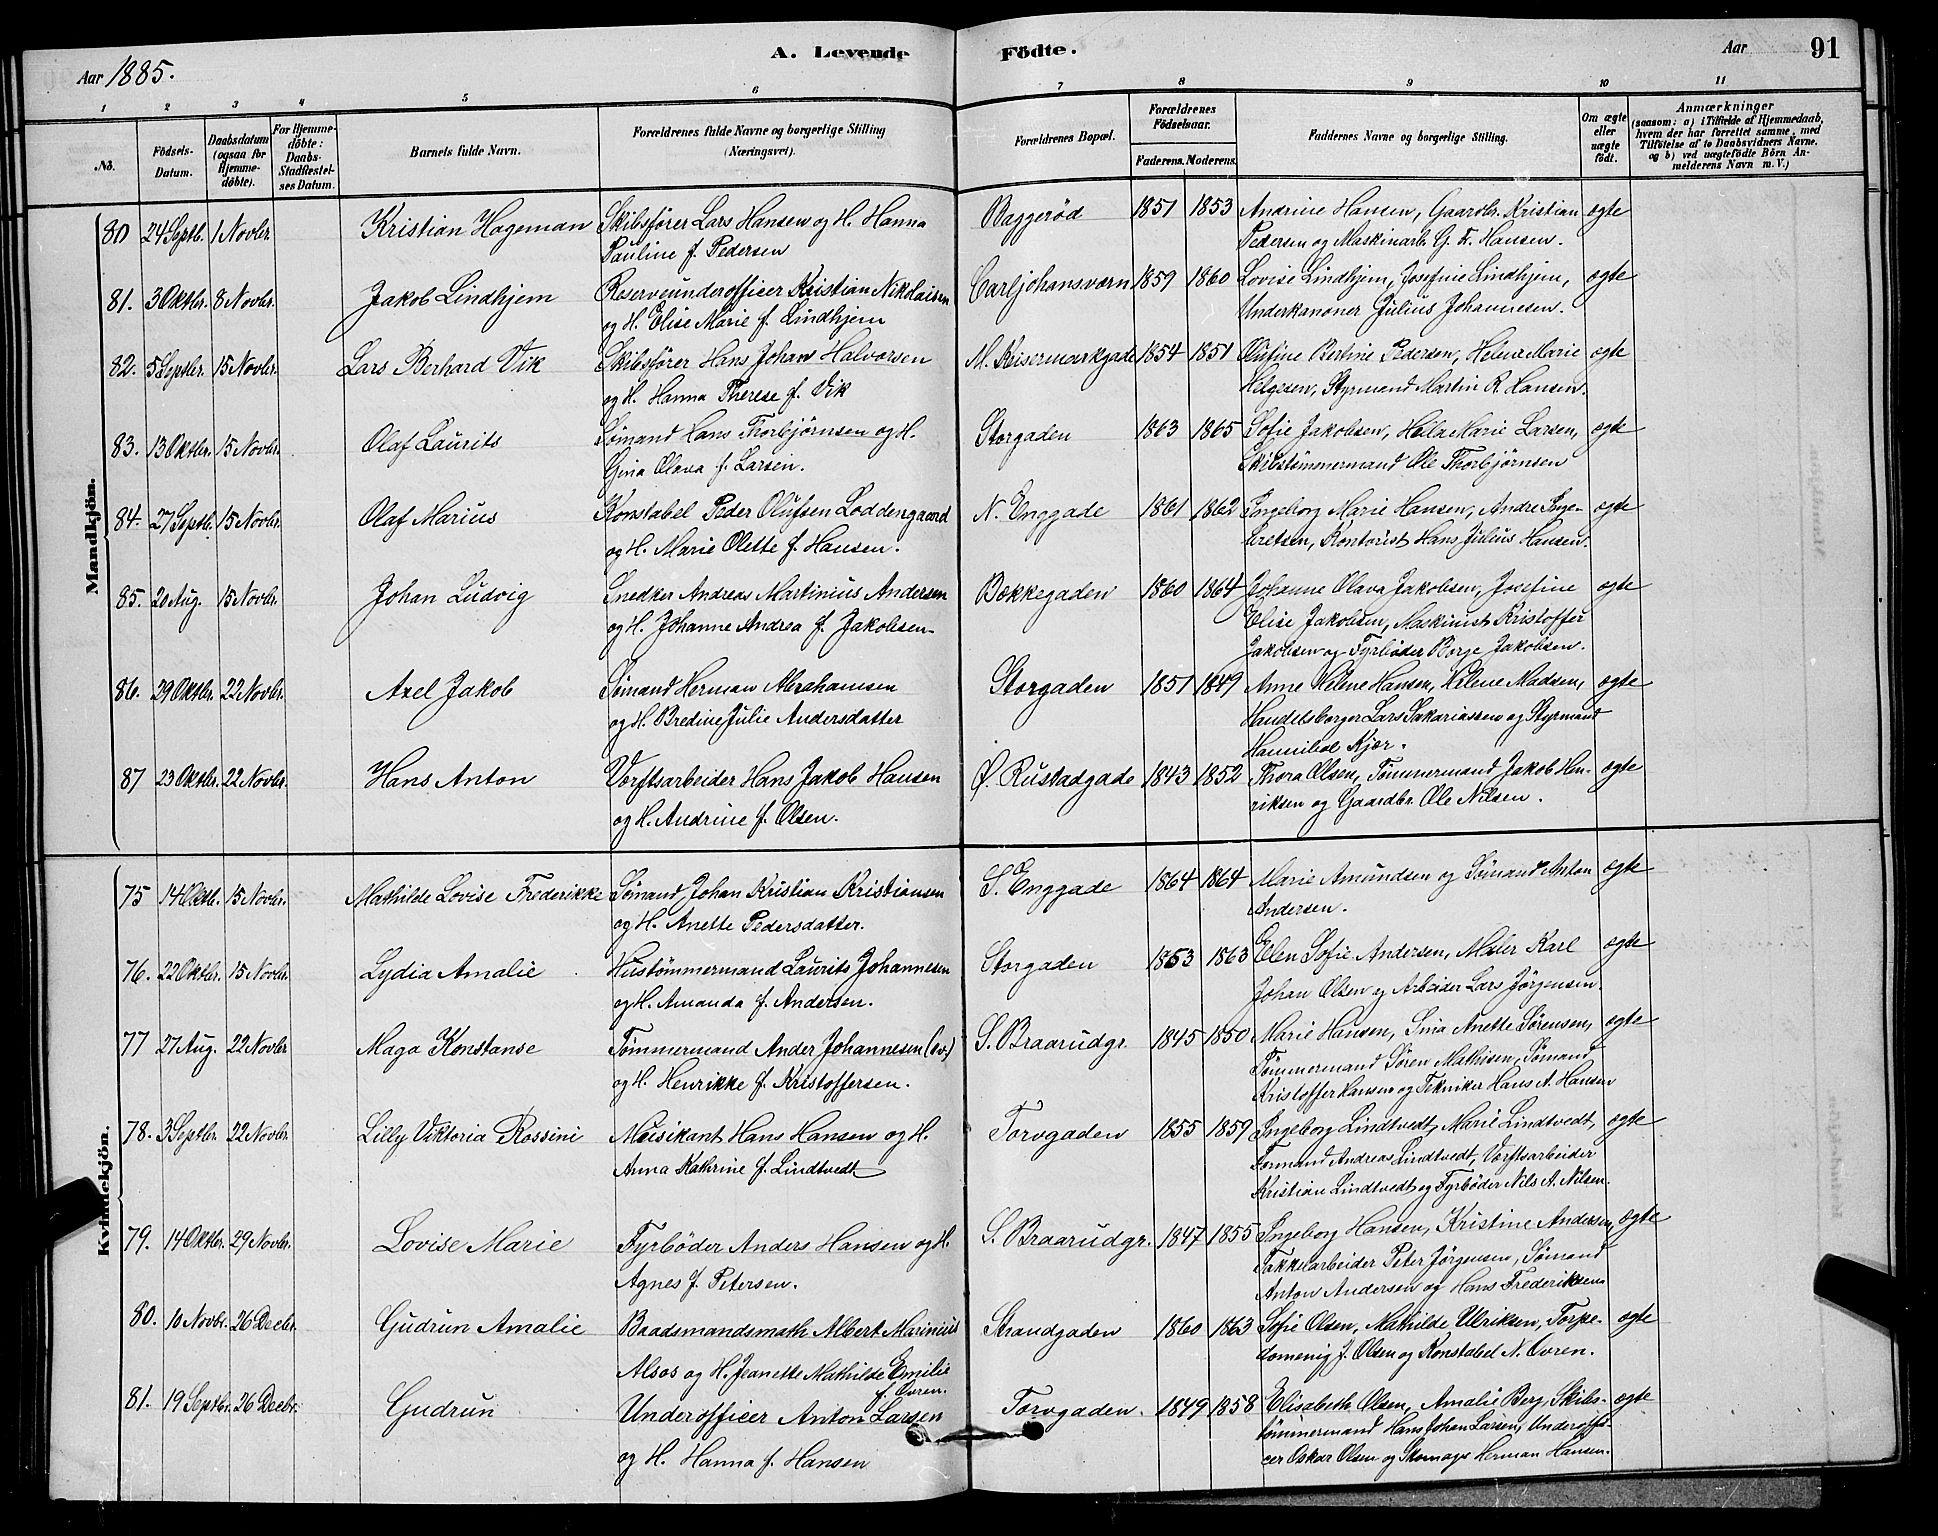 A. Levende Födte. Aar 91
Aar 1885.
1 2 3 4 5 6 7 8 9 10 11
No.
Födsels-Datum.
Daabsdatum (ogsaa for Hjemmedöbte).
For Hjemmedöbte: Daabs-Stadfæstelses Datum.
Barnets fulde Navn.
Forældrenes fulde Navne og borgerlige Stilling (Næringsvei).
Forældrenes Bopæl.
Forældrenes Födselsaar.
Faderens. Moderens.
Faddernes Navne og borgerlige Stilling.
Om ægte eller uægte födt.
Anmærkninger
(saasom: a) i Tilfælde af Hjemmedaab, hvem der har forrettet samme, med Tilföielse af to Daabsvidners Navne, og b) ved uægtefödte Börn Anmelderens Navn m. V.)
Mandkjön.
80 24 Septb. 1 Novbr. Kristian Hageman Skibsfører Lars Hansen og H. Hanna Baggerød 1851 1853 Andrine Hansen, Gaardbr. Kristian ægte
Pauline f. Pedersen Pedersen og Maskinarb. G. F. Hansen.
81. 3 Oktbr. 8 Novbr. Jakob Lindhjem Reserveunderofficer Kristian Nikolaisen Carljohansværn 1859 1860 Lovise Lindhjem, Josefine Lindhjem, ægte
og H. Elise Marie f. Lindhjem Underkanoner Julius Johannesen.
82. 5 Septbr. 15 Novbr. Lars Berhard Vik Skibsfører Hans Johan Halvorsen M. Keisermarkgade 1854 1851 Olufine Bertine Pedersen, Helene Marie ægte
og H. Hanna Therese f. Vik Helgesen, Styrmand Martin R. Hansen.
83. 13 Oktbr. 15 Novbr. Olaf Laurits Sømand Hans Thorbjørnsen og H. Storgaden 1863 1865 Sofie Jakobsen, Hela Marie Larsen, ægte
Gina Olava f. Larsen. Skibstømmermand Ole Thorbjørnsen
84. 27 Septb. 15 Novbr. Olaf Marius Konstabel Peder Olufsen Loddengaard N. Enggade 1861 1862 Ingeborg Marie Hansen, Andre Inge- ægte
og H. Marie Olette f. Hansen. bretsen, Kontorist Hans Julius Hansen.
85. 20 Aug. 15 Novbr. Johan Ludvig Snedker Andreas Martinius Andersen Bækkegaden 1860 1864 Johanne Olava Jakobsen, Josefine ægte
og H. Johanne Andrea f. Jakobsen. Elise Jakobsen, Maskinist Kristoffer
Jakobsen og Fyrbøder Borge Jakobsen.
86. 29 Oktbr. 22 Novbr. Axel Jakob Sømand Herman Abrahamsen Storgaden 1851 1849 Anne Helene Hansen, Helene Madsen, ægte
og H. Bredine Julie Andersdatter Handelsborger Lars Sakariassen og Styrmand
Hannibal Kjær.
87 23 Oktbr. 22 Novbr. Hans Anton Værftsarbeider Hans Jakob Hansen Ø. Rustadgade 1843 1852 Thora Olsen, Tømmermand Jakob Hen- ægte
og H. Andrine f. Olsen. riksen og Gaardbr. Ole Nilsen.
Kvindekjön.
75 14 Oktb. 15 Novbr. Mathilde Lovise Frederikke Sømand Johan Kristian Kristiansen S. Enggade 1864 1864 Marie Amundsen og Sømand Anton ægte
og H. Anette Pedersdatter. Andersen.
76. 22 Oktbr. 15 Novbr. Lydia Amalie Hustømmermand Laurits Johannesen Storgaden 1853 1863 Elen Sofie Andersen, Maler Karl ægte
og H. Amanda f. Andersen. Johan Olsen og Arbeider Lars Jørgensen.
77 27 Aug. 22 Novbr Maga Konstanse Tømmermand Ander Johannesen (Ev.) S. Braarudgr. 1845 1850 Marie Hansen, Sina Anette Sørensen, ægte
og H. Henrikke f. Kristoffersen. Tømmermand Søren Mathisen, Sømand
Kristoffer Hansen og Tekniker Hans A. Hansen
78. 3 Septbr. 22 Novbr. Lilly Viktoria Rossini Musikant Hans Hansen og H. Torvgaden 1855 1859 Ingeborg Lindtvedt, Marie Lindtvedt, ægte
Anna Kathrine f. Lindtvedt Formand Andreas Lindtvedt, Værftsarbeider
Kristian Lindtvedt og Fyrbøder Nils A. Nilsen.
79. 14 Oktbr. 29 Novbr. Lovise Marie Fyrbøder Anders Hansen og H. S. Braarudgr. 1847 1855 Ingeborg Hansen, Kristine Andersen, ægte
Agnes f. Petersen. Takkelarbeider Peter Jørgensen, Sømand
Anton Andersen og Hans Frederiksen
80. 10 Novbr. 26 Decbr. Gudrun Amalie Baadsmandsmath Albert Marinius Strandgaden 1860 1863 Sofie Olsen, Mathilde Ulriksen, Torpe- ægte
Alsos og H. Jeanette Mathilde Emilie domenig J. Olsen og Konstabel N. Øvren.
f. Øvren.
81. 19 Septbr. 26 Decbr. Gudrun Underofficer Anton Larsen Torvgaden. 1849 1858 Elisabeth Olsen, Amalie Berg, Skibs- ægte
og H. Hanna f. Hansen tømmermand Hans Johan Larsen, Underoffi-
cer Oskar Olsen og Skomager Herman Hansen.